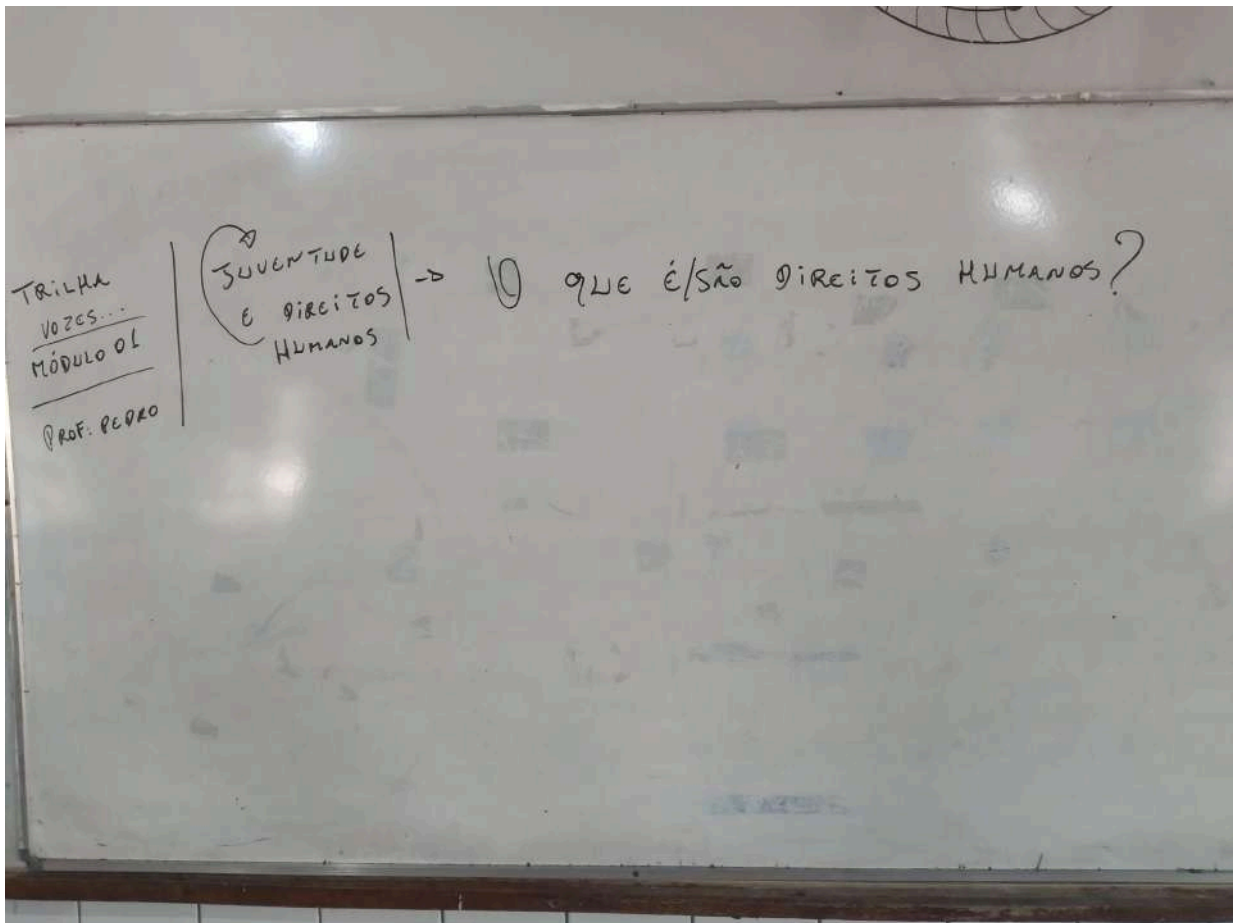 TRILHA
VOZES...
MÓDULO 01
PROF: PEDRO
JUVENTUDE
E DIREITOS
HUMANOS
O QUE É/SÃO DIREITOS HUMANOS?